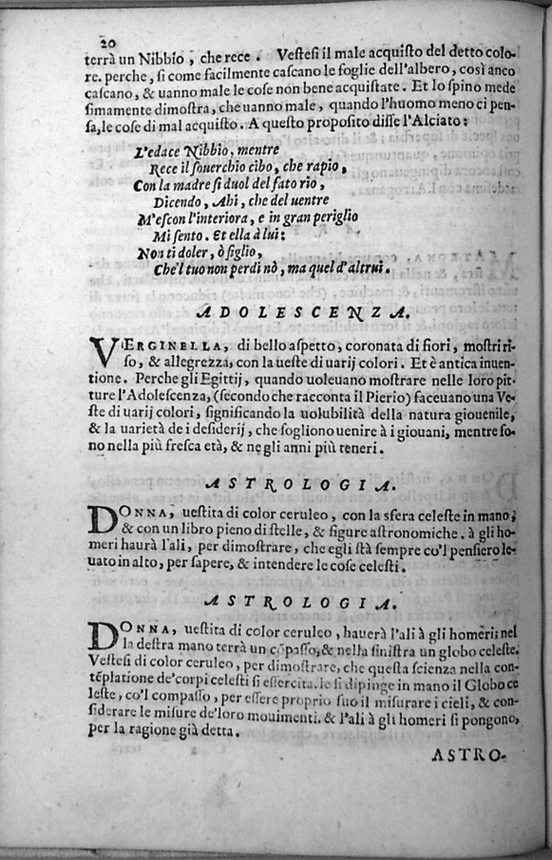 20
terrà un Nibbio, che rece. Vestesi il male acquisto del detto colo-
re. perche, si come facilmente cascano le foglie dell'albero, così anco
cascano, & uanno male le cose non bene acquistate. Et lo spino mede
simamente dimostra, che uanno male, quando l'huomo meno ci pen-
sa, le cose di mal acquisto. A questo proposito disse l'Alciato:
L'edace Nibbio, mentre
Rece il souerchio cibo, che rapio,
Con la madre si duol del fato rio,
Dicendo, Ahi, che del uentre
M'escon l'interiora, e in gran periglio
Mi sento. Et ella à lui:
Non ti doler, ò figlio,
Che'l tuo non perdi nò, ma quel d'altrui.
ADOLESCENZA.
VERGINELLA, di bello aspetto, coronata di fiori, mostri ri-
so, & allegrezza, con la ueste di uarij colori. Et è antica inuen-
tione. Perche gli Egittij, quando uoleuano mostrare nelle loro pit-
ture l'Adolescenza, (secondo che racconta il Pierio) faceuano una Ve-
ste di uarij colori, significando la uolubilità della natura giouenile,
& la uarietà de i desiderij, che sogliono uenire à i giouani, mentre so-
no nella più fresca età, & negli anni più teneri.
ASTROLOGIA.
DONNA, uestita di color ceruleo, con la sfera celeste in mano;
& con un libro pieno di stelle, & figure astronomiche. à gli ho-
meri haurà l'ali, per dimostrare, che egli stà sempre co'l pensiero le-
uato in alto, per sapere, & intendere le cose celesti.
ASTROLOGIA.
DONNA, uestita di color ceruleo, hauerà l'ali à gli homeri; nel
la destra mano terrà un cōpasso, & nella sinistra un globo celeste.
Vestesi di color ceruleo, per dimostrare, che questa scienza nella con-
tēplatione de'corpi celesti si essercita. le si dipinge in mano il Globo ce
leste, co'l compasso, per essere proprio suo il misurare i cieli, & con-
siderare le misure de'loro mouimenti. & l'ali à gli homeri si pongono,
per la ragione già detta.
ASTRO-